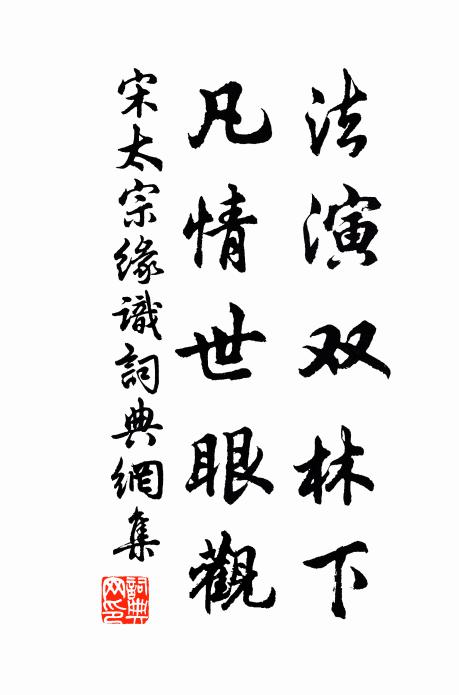 法演双林下
凡情世眼觀
宋太宗緣識詞典網集
詞典網印